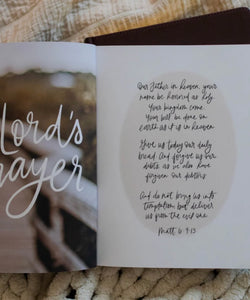 Lord's
Prayer
Our Father in heaven, your
name be honored as holy.
Your kingdom come.
Your will be done on
earth as it is in heaven.
Give us today our daily
bread. And forgive us our
debts, as we also have
forgiven our debtors.
And do not bring us into
temptation, but deliver
us from the evil one.
Matt. 6:9-13